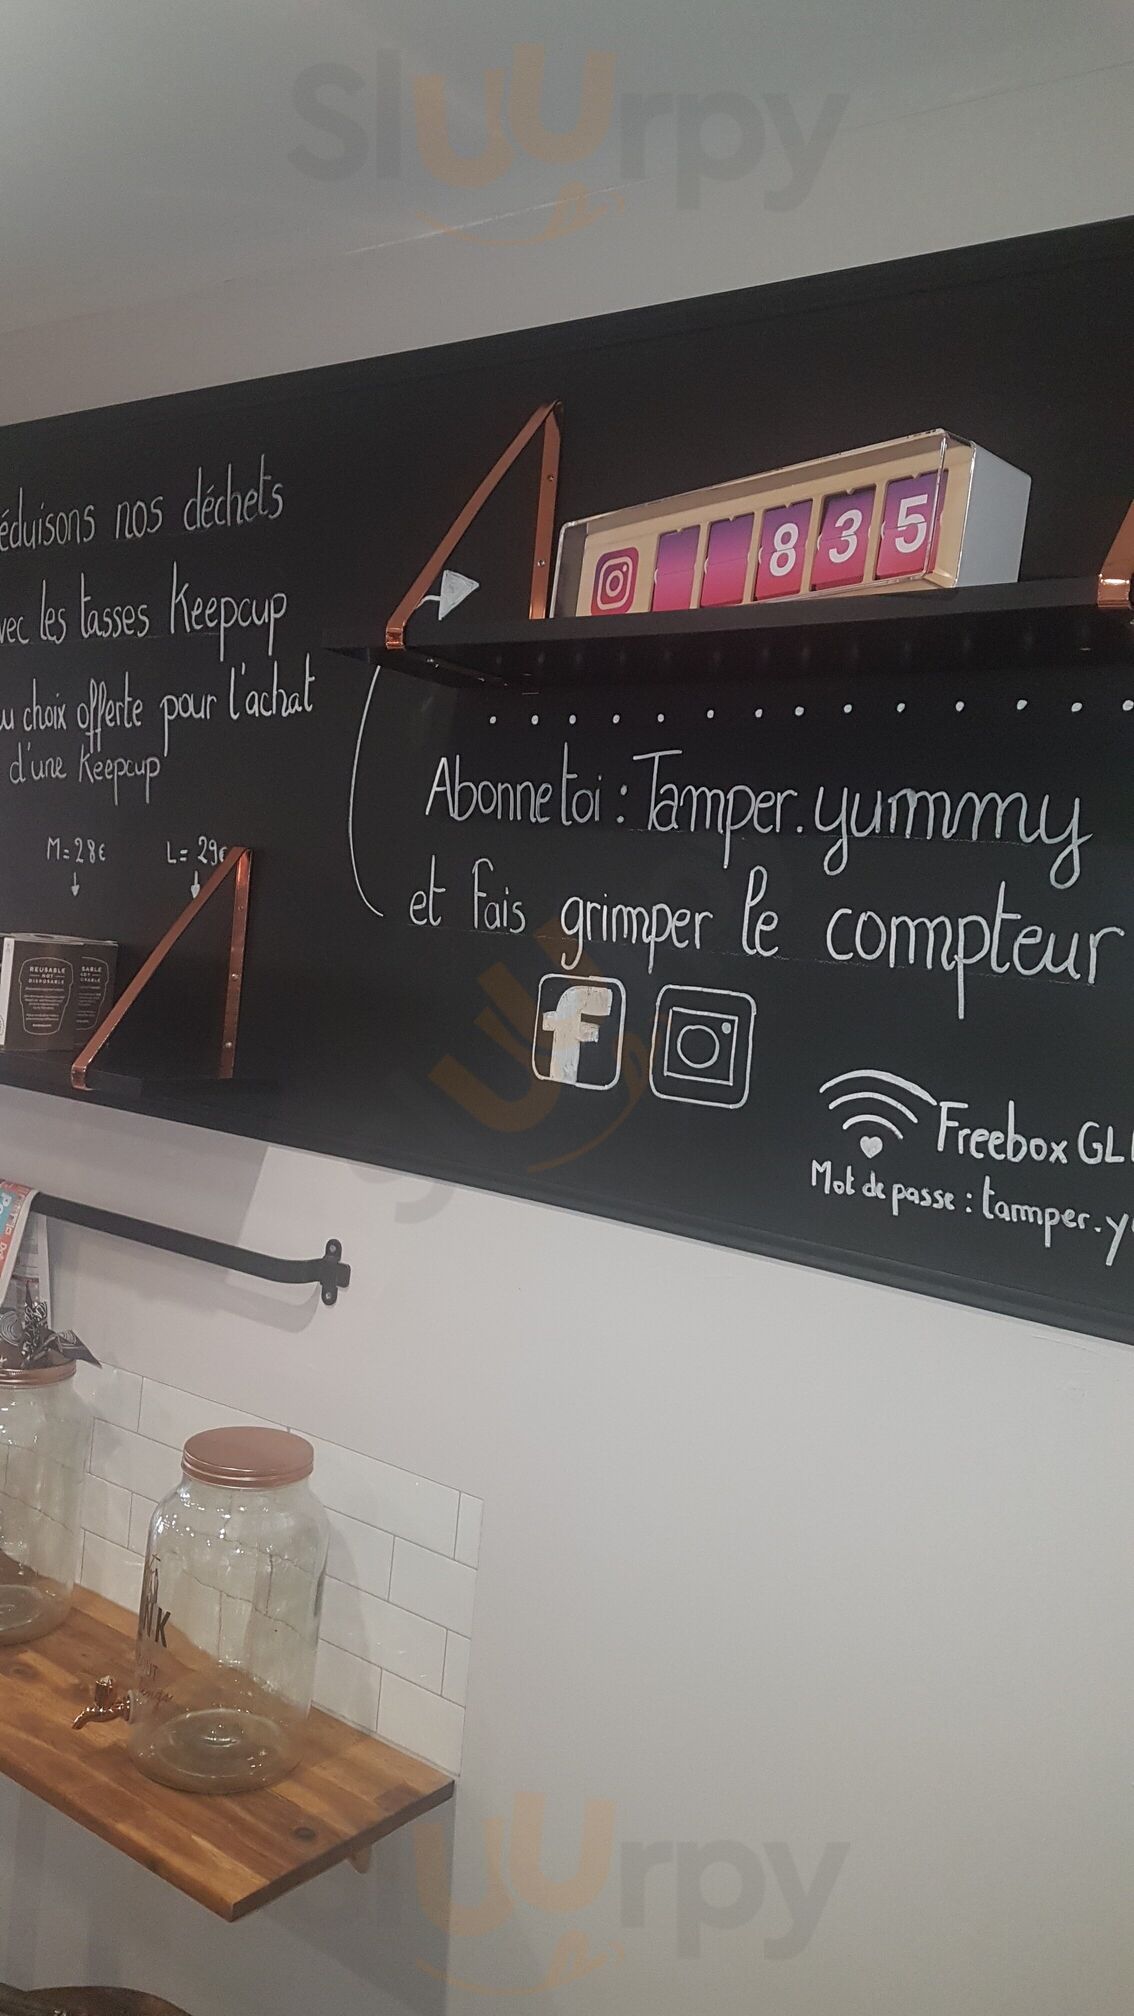 SluUrpy
nos déchets
les tasses Keepcup
choix offerte pour l'achat
d'une Keepcup
M=28€ L=29€
REUSABLE
NOT
DISPOSABLE
835
Abonne toi : Tamper.yummy
et fais grimper le compteur
f
Freebox
Mot de passe :